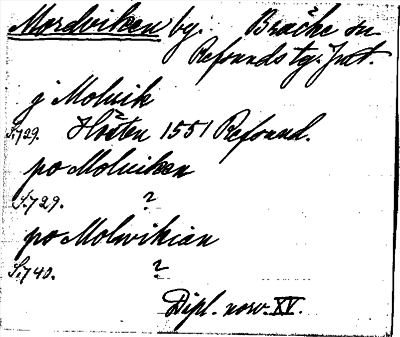 Mordviken by. Bräcke sn
Refsunds tg. Jmt.
j Moluik
S. 729. Hösten 1551 Refsund.
po Moluiken
S. 729. ?
po Molwikian
S. 740. ?
Dipl. norv. XV.